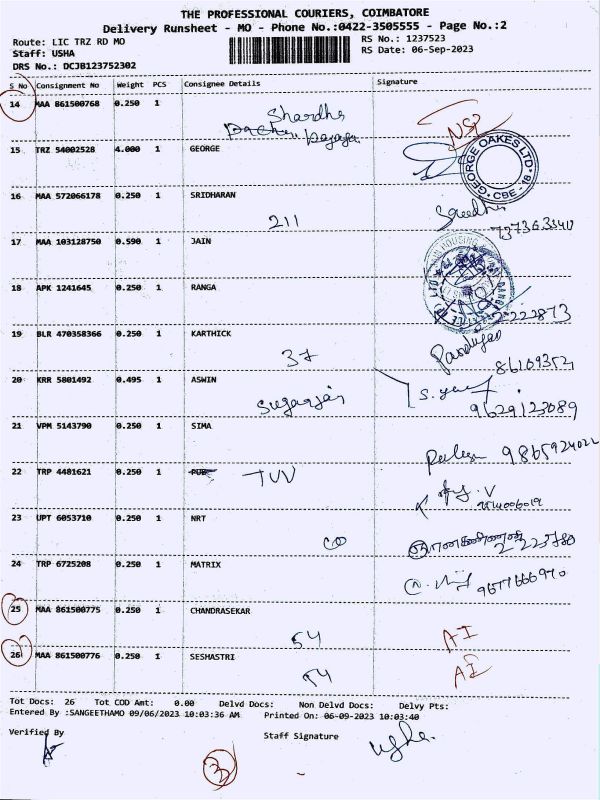 THE PROFESSIONAL COURIERS, COIMBATORE
Delivery Runsheet - MO - Phone No.:0422-3505555 - Page No.:2
Route: LIC TRZ RD MO
RS No.: 1237523
Staff: USHA
RS Date: 06-Sep-2023
DRS No.: DCJB123752302
S No Consignment No Weight PCS Consignee Details Signature
14 MAA 861500768 0.250 1
Shardha
NSP
15 TRZ 54002528 4.000 1 GEORGE
GEORGE OAKES LTD. CBE - 18
16 MAA 572066178 0.250 1 SRIDHARAN
211
17 MAA 103128750 0.590 1 JAIN
18 APK 1241645 0.250 1 RANGA
2222873
19 BLR 470358366 0.250 1 KARTHICK
37
20 KRR 5801492 0.495 1 ASWIN
9629123089
21 VPM 5143790 0.250 1 SIMA
9865924022
22 TRP 4481621 0.250 1 TUV
23 UPT 6053710 0.250 1 NRT
24 TRP 6725208 0.250 1 MATRIX
9677666970
25 MAA 861500775 0.250 1 CHANDRASEKAR
54 AI
26 MAA 861500776 0.250 1 SESHASTRI
54 AI
Tot Docs: 26 Tot COD Amt: 0.00 Delvd Docs: Non Delvd Docs: Delvy Pts:
Entered By :SANGEETHAMO 09/06/2023 10:03:36 AM Printed On: 06-09-2023 10:03:40
Verified By
Staff Signature
Usha.
3